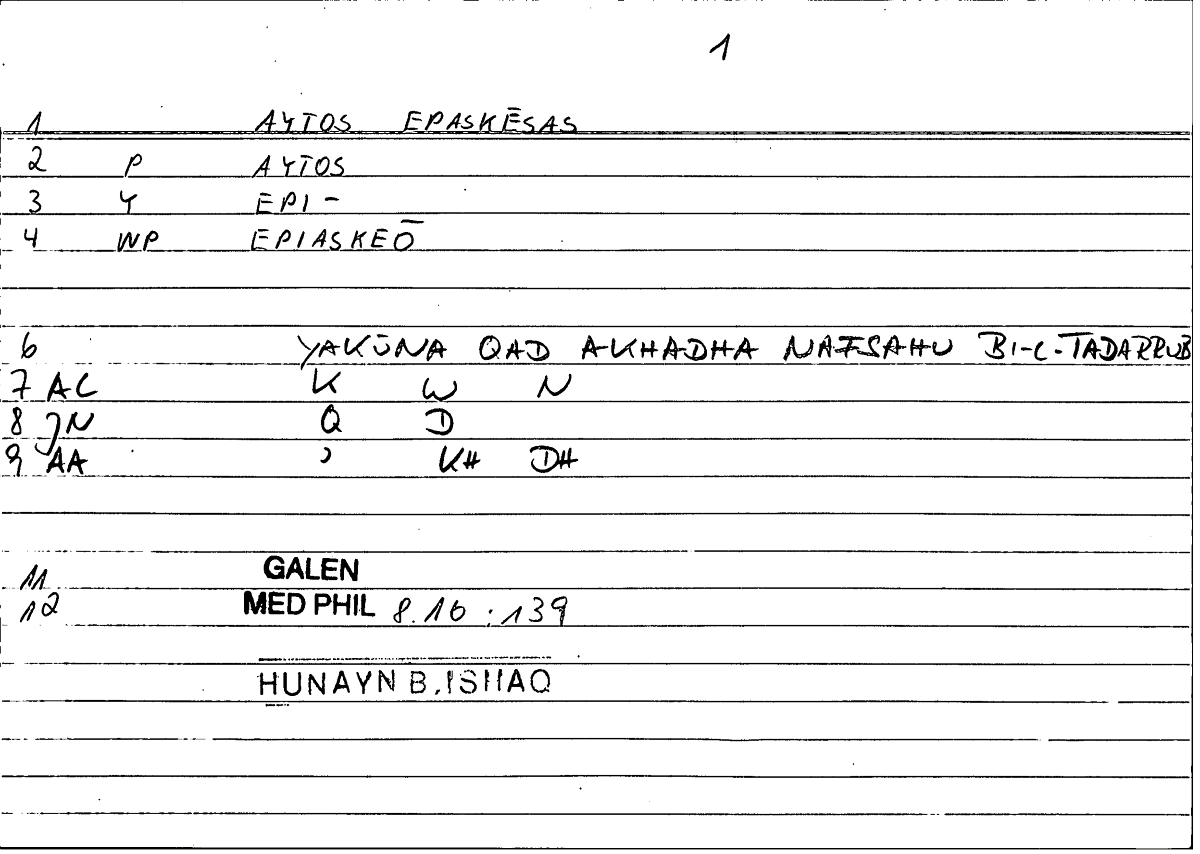 1
1 AYTOS EPASKĒSAS
2 P AYTOS
3 Y EPI-
4 WP EPIASKEŌ
6 YAKŪNA QAD AKHADHA NAFSAHU BI-L-TADARRUB
7 AL K W N
8 JN Q D
9 AA ʾ KH DH
11 GALEN
12 MED PHIL 8.16 : 139
HUNAYN B. ISHAQ